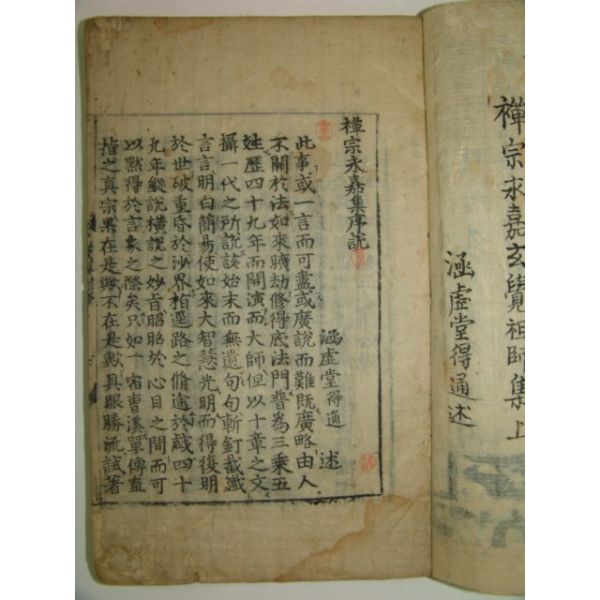 禪宗永嘉玄覺祖師集上
涵虛堂得通述
禪宗永嘉集序說
涵虛堂得通 述
此事或一言而可盡或廣說而難旣廣略由人
不關於法如來曠劫修得底法門普爲三乘五
姓歷四十九年而開演而大師但以十章之文
攝一代之所說該始末而無遺句句斬釘截鐵
言言明白簡易使如來大智慧光明而得復明
於世破重昏於沙界指迷路之脩途於戱四十
九年縱說橫說之妙旨昭昭於心目之間而可
以默得於言象之際矣只如一宿曹溪單傳直
指之真宗果在是歟不在是歟具眼勝流試著